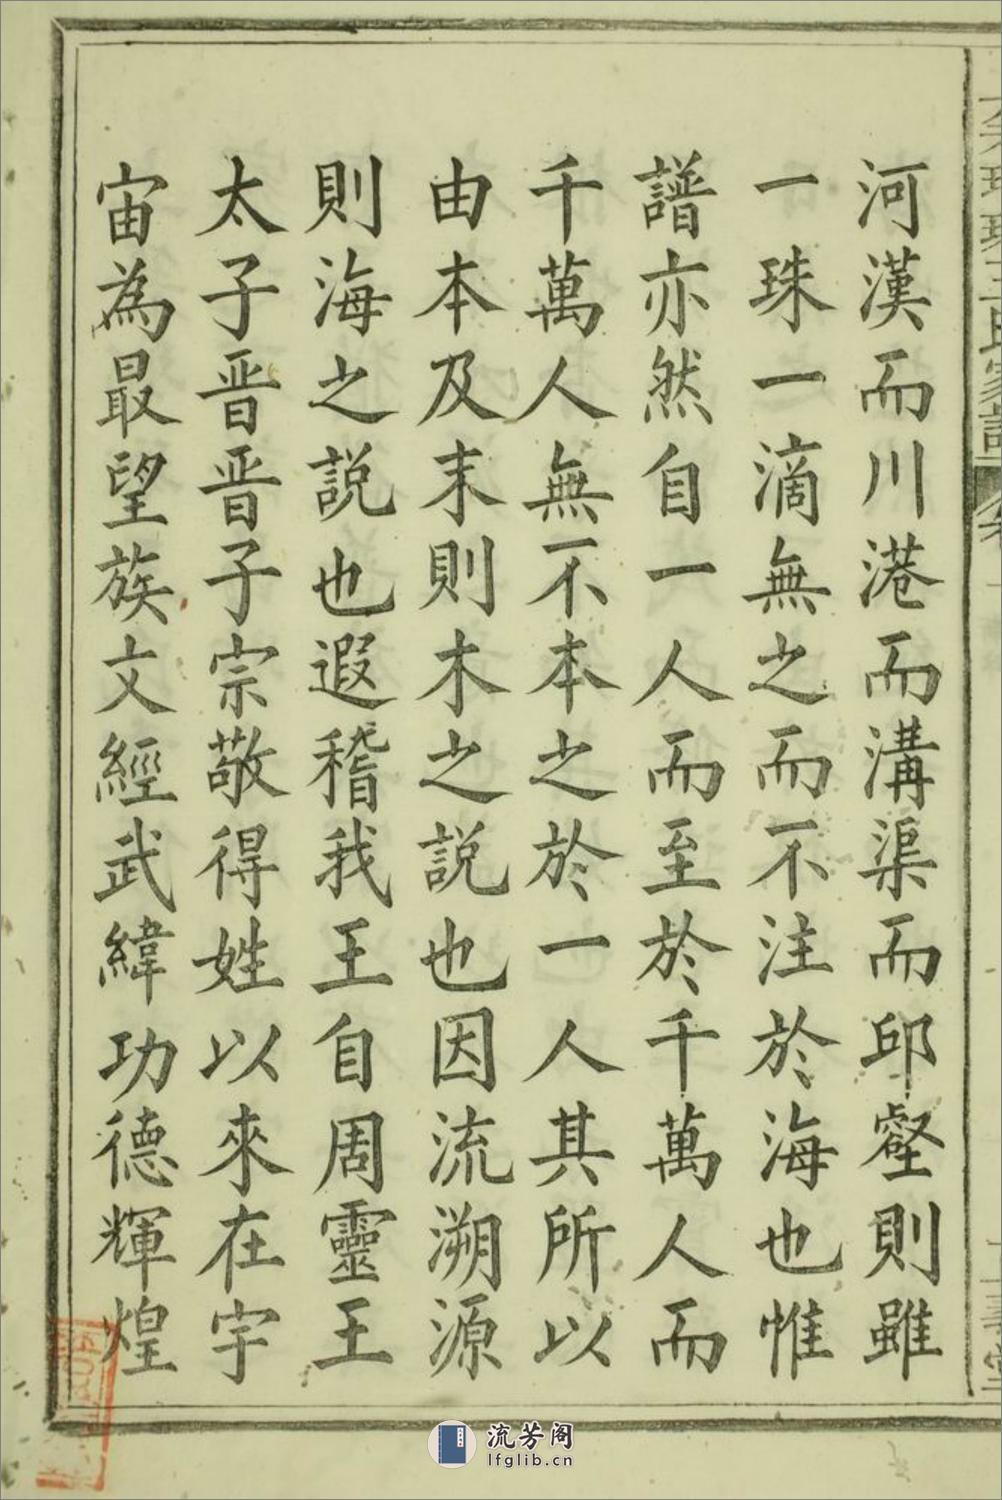 河漢而川港而溝渠而邱壑則雖
一珠一滴無之而不注於海也惟
譜亦然自一人而至於千萬人而
千萬人無不本之於一人其所以
由本及末則木之説也因流溯源
則海之説也遐稽我王自周靈王
太子晋晋子宗敬得姓以來在宇
宙為最望族文經武緯功德輝煌
流芳阁
lfglib.cn